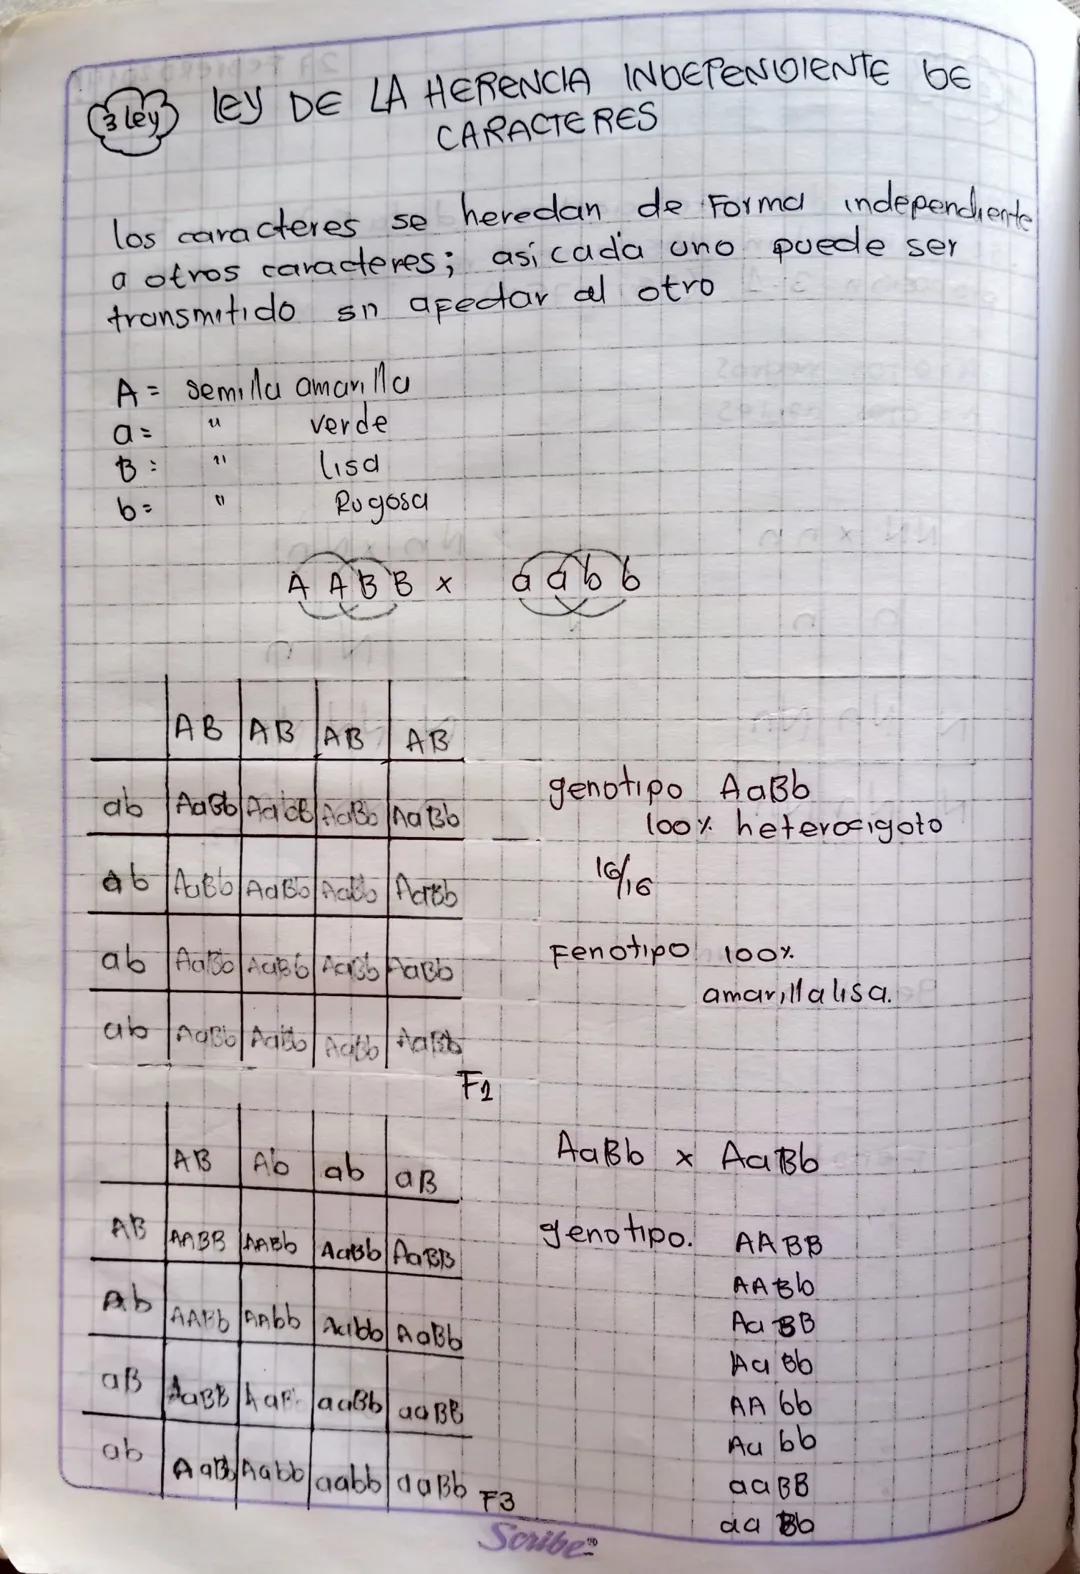 3 ley
ley DE LA HERENCIA INDEPENDIENTE DE
CARACTERES
los caracteres se heredan de Forma independiente
a otros caracteres; así cada uno puede ser
transmitido sn afectar al otro
A = semilla amarilla
a = " verde
B = " lisa
b = " Rugosa
A A B B x a a b b
AB AB AB AB
ab AaBb AaBb AaBb AaBb
ab AaBb AaBb AaBb AaBb
ab AaBb AaBb AaBb AaBb
ab AaBb AaBb AaBb AaBb
F1
genotipo AaBb
100% heterocigoto
16/16
Fenotipo 100%
amarilla lisa.
AB Ab ab aB
AB AABB AABb AaBb AaBB
Ab AABb AAbb Aabb AaBb
aB AaBB AaB aaBb aaBB
ab AaBb Aabb aabb aaBb
F3
AaBb x AaBb
genotipo. AABB
AABb
AaBB
AaBb
AAbb
Aabb
aaBB
aaBb
Scribe